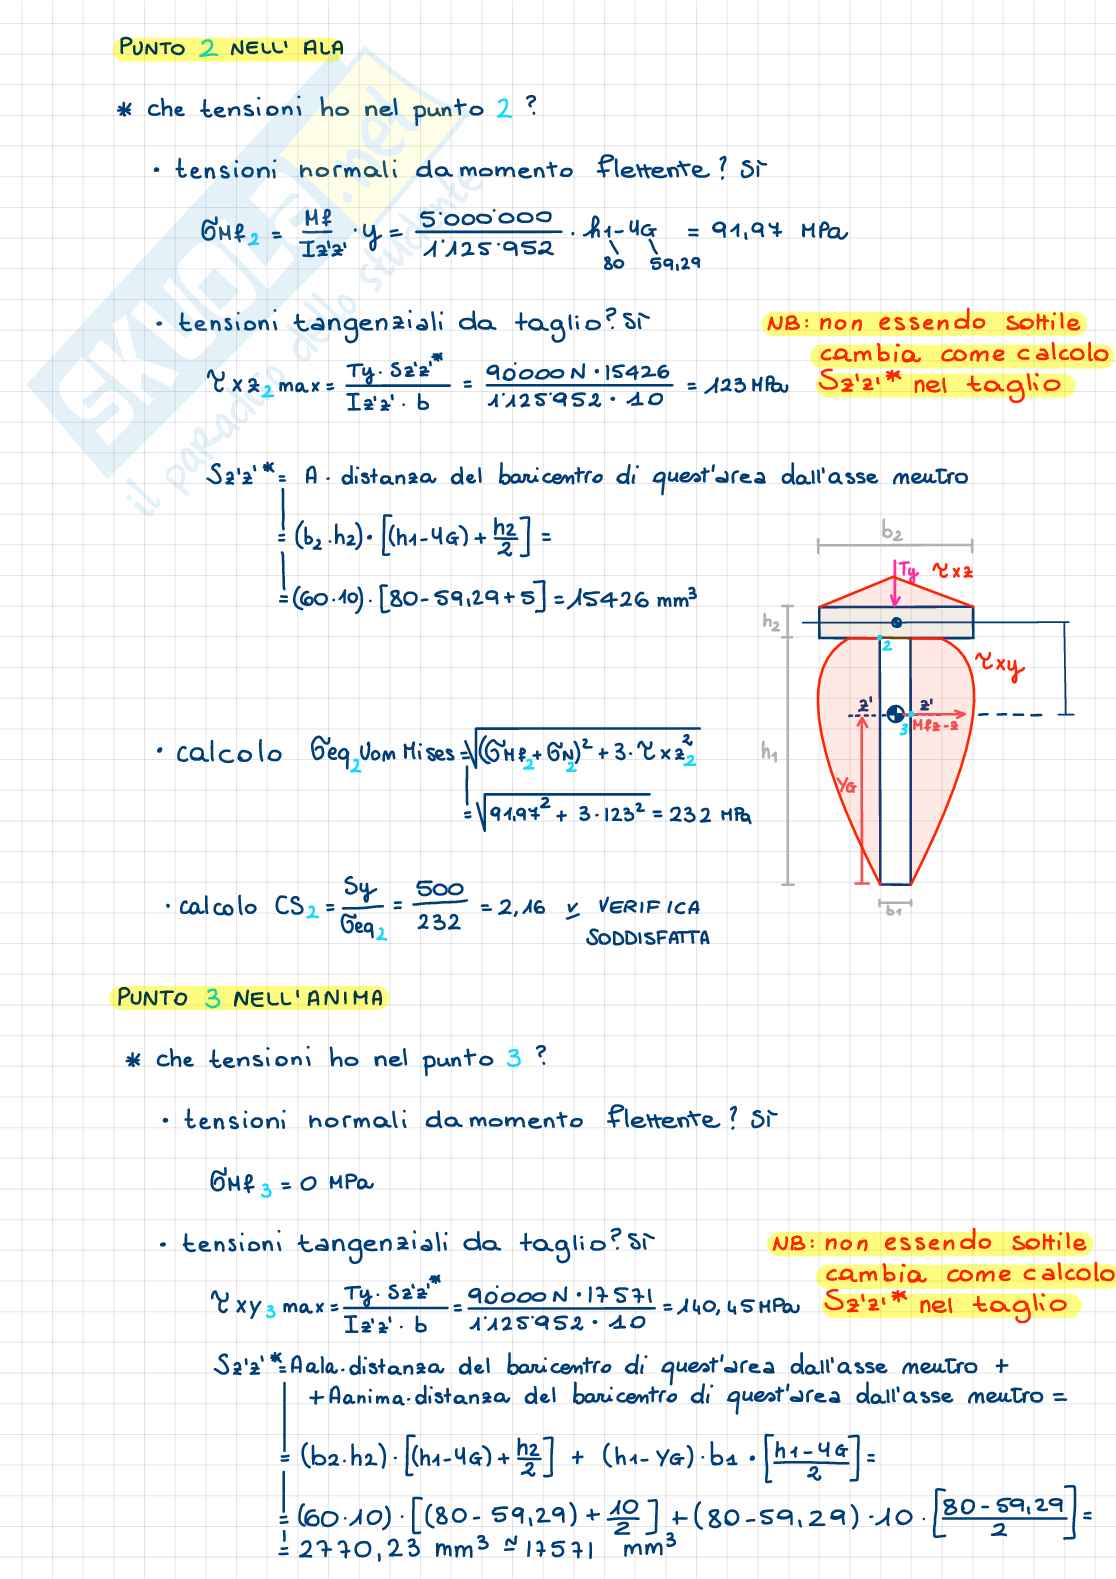 PUNTO 2 NELL' ALA
* che tensioni ho nel punto 2 ?
• tensioni normali da momento flettente? Sì
σMf2 = Mf / Iz'z' · y = 5'000'000 / 1'125'952 · h1-yG = 91,97 MPa
80 59,29
• tensioni tangenziali da taglio? Sì
NB: non essendo sottile
cambia come calcolo
Sz'z'* nel taglio
τxz2 max = Ty · Sz'z'* / Iz'z' · b = 90'000 N · 15426 / 1'125'952 · 10 = 123 MPa
Sz'z'* = A · distanza del baricentro di quest'area dall'asse neutro
= (b2 · h2) · [(h1-yG) + h2/2] =
= (60·10) · [80-59,29+5] = 15426 mm³
b2
Ty τxz
h2
2
τxy
z' z'
3 Mfz-z
h1
YG
b1
• calcolo σeq2 Vom Mises = √(σMf2 + σN2)² + 3 · τxz2²
= √91,97² + 3·123² = 232 MPa
• calcolo CS2 = Sy / σeq2 = 500 / 232 = 2,16 v VERIFICA
SODDISFATTA
PUNTO 3 NELL'ANIMA
* che tensioni ho nel punto 3 ?
• tensioni normali da momento flettente? Sì
σMf3 = 0 MPa
• tensioni tangenziali da taglio? Sì
NB: non essendo sottile
cambia come calcolo
Sz'z'* nel taglio
τxy3 max = Ty · Sz'z'* / Iz'z' · b = 90'000 N · 17571 / 1'125952 · 10 = 140,45 MPa
Sz'z'* = Aala · distanza del baricentro di quest'area dall'asse neutro +
+ Aanima · distanza del baricentro di quest'area dall'asse neutro =
= (b2·h2) · [(h1-yG) + h2/2] + (h1-YG) · b1 · [h1-yG / 2] =
= (60·10) · [(80-59,29) + 10/2] + (80-59,29) · 10 · [80-59,29 / 2] =
= 2770,23 mm³ ≈ 17571 mm³
SKUOLA.net
il paradiso dello studente